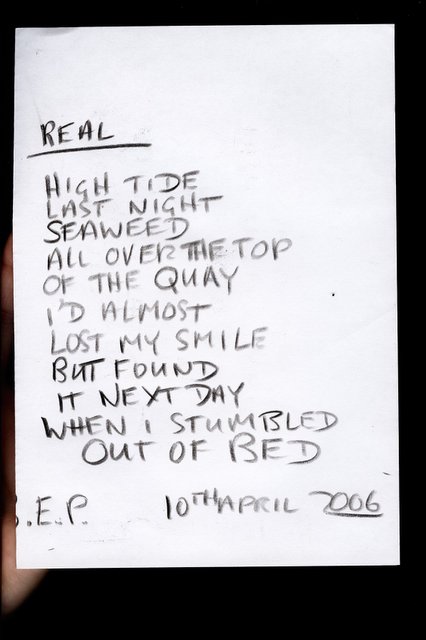 REAL
HIGH TIDE
LAST NIGHT
SEAWEED
ALL OVER THE TOP
OF THE QUAY
I'D ALMOST
LOST MY SMILE
BUT FOUND
IT NEXT DAY
WHEN I STUMBLED
OUT OF BED
.E.P. 10TH APRIL 2006